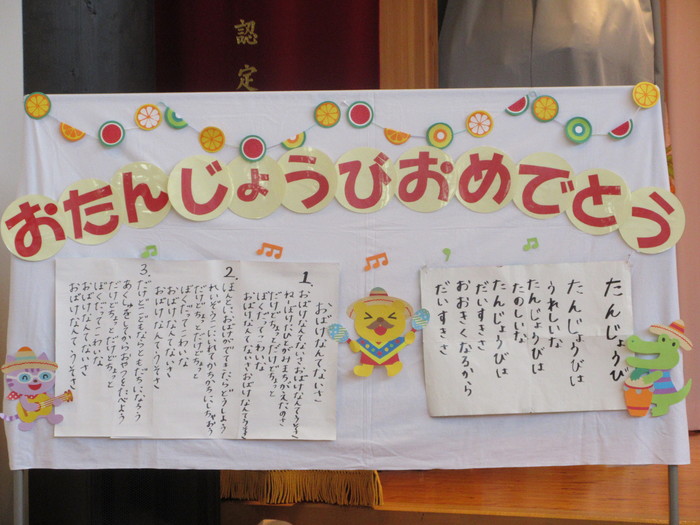 認定
おたんじょうびおめでとう
たんじょうび
たんじょうびは
うれしいな
たんじょうびは
たのしいな
たんじょうびは
だいすきさ
おおきくなるから
だいすきさ
おばけなんてないさ
1.
おばけなんてないさおばけなんてうそさ
ねぼけたひとがみまちがえたのさ
だけどちょっとだけどちょっと
ぼくだってこわいな
おばけなんてないさおばけなんてうそさ
2.
ほんとにおばけがでてきたらどうしよう
れいぞうこにいれてかちかちにしちゃおう
だけどちょっとだけどちょっと
ぼくだってこわいな
おばけなんてないさ
おばけなんてうそさ
3.
だけどこどもならともだちになろう
あくしゅをしてからおやつをたべよう
だけどちょっとだけどちょっと
ぼくだってこわいな
おばけなんてないさ
おばけなんてうそさ